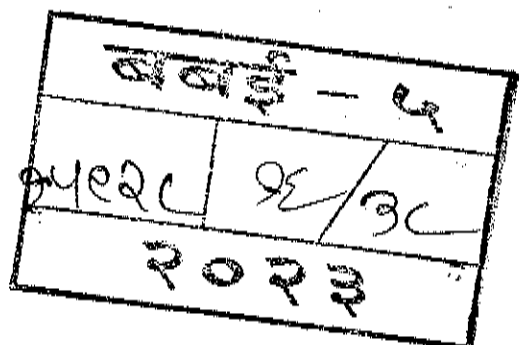 बबई - ५
१५९२८ १६/३८
२०२३